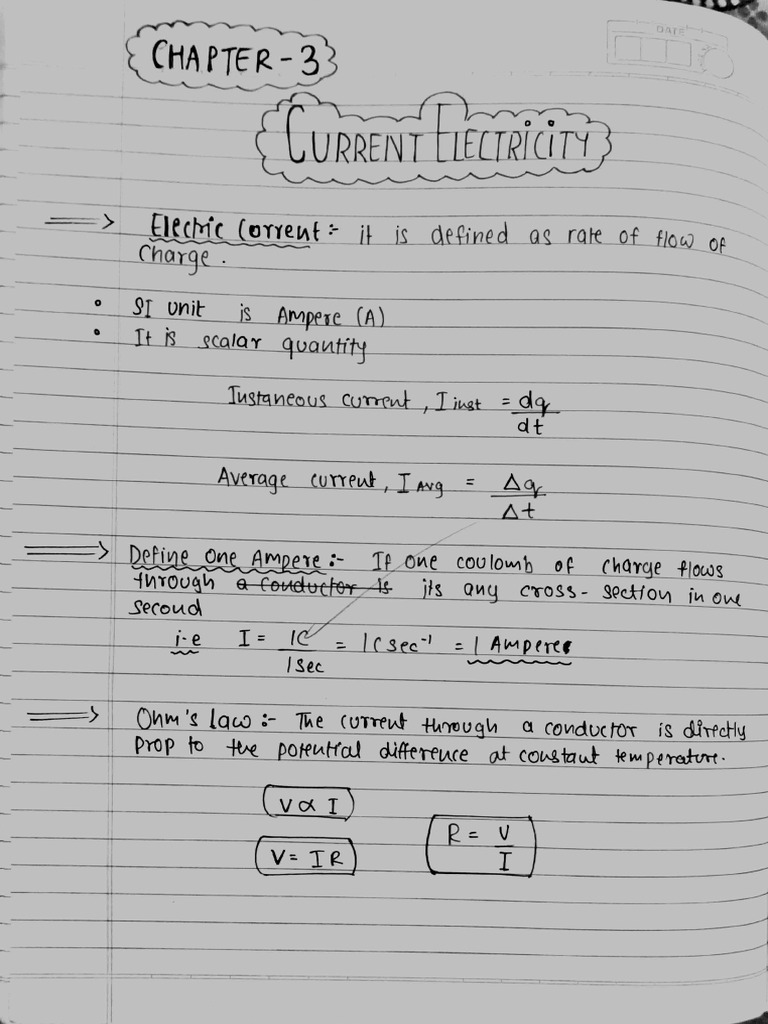 DATE
CHAPTER-3
CURRENT ELECTRICITY
Electric Corrent:- it is defined as rate of flow of
Charge.
SI unit is Ampere (A)
It is scalar quantity
Instaneous current, I inst = dq/dt
Average current, I Avg = Δq/Δt
Define One Ampere:- If one coulomb of charge flows
through a conductor is its any cross-section in one
second
i.e I = 1C/1sec = 1C sec⁻¹ = 1 Ampere
Ohm's law:- The current through a conductor is directly
prop to the potential difference at constant temperature.
V ∝ I
V = IR
R = V/I